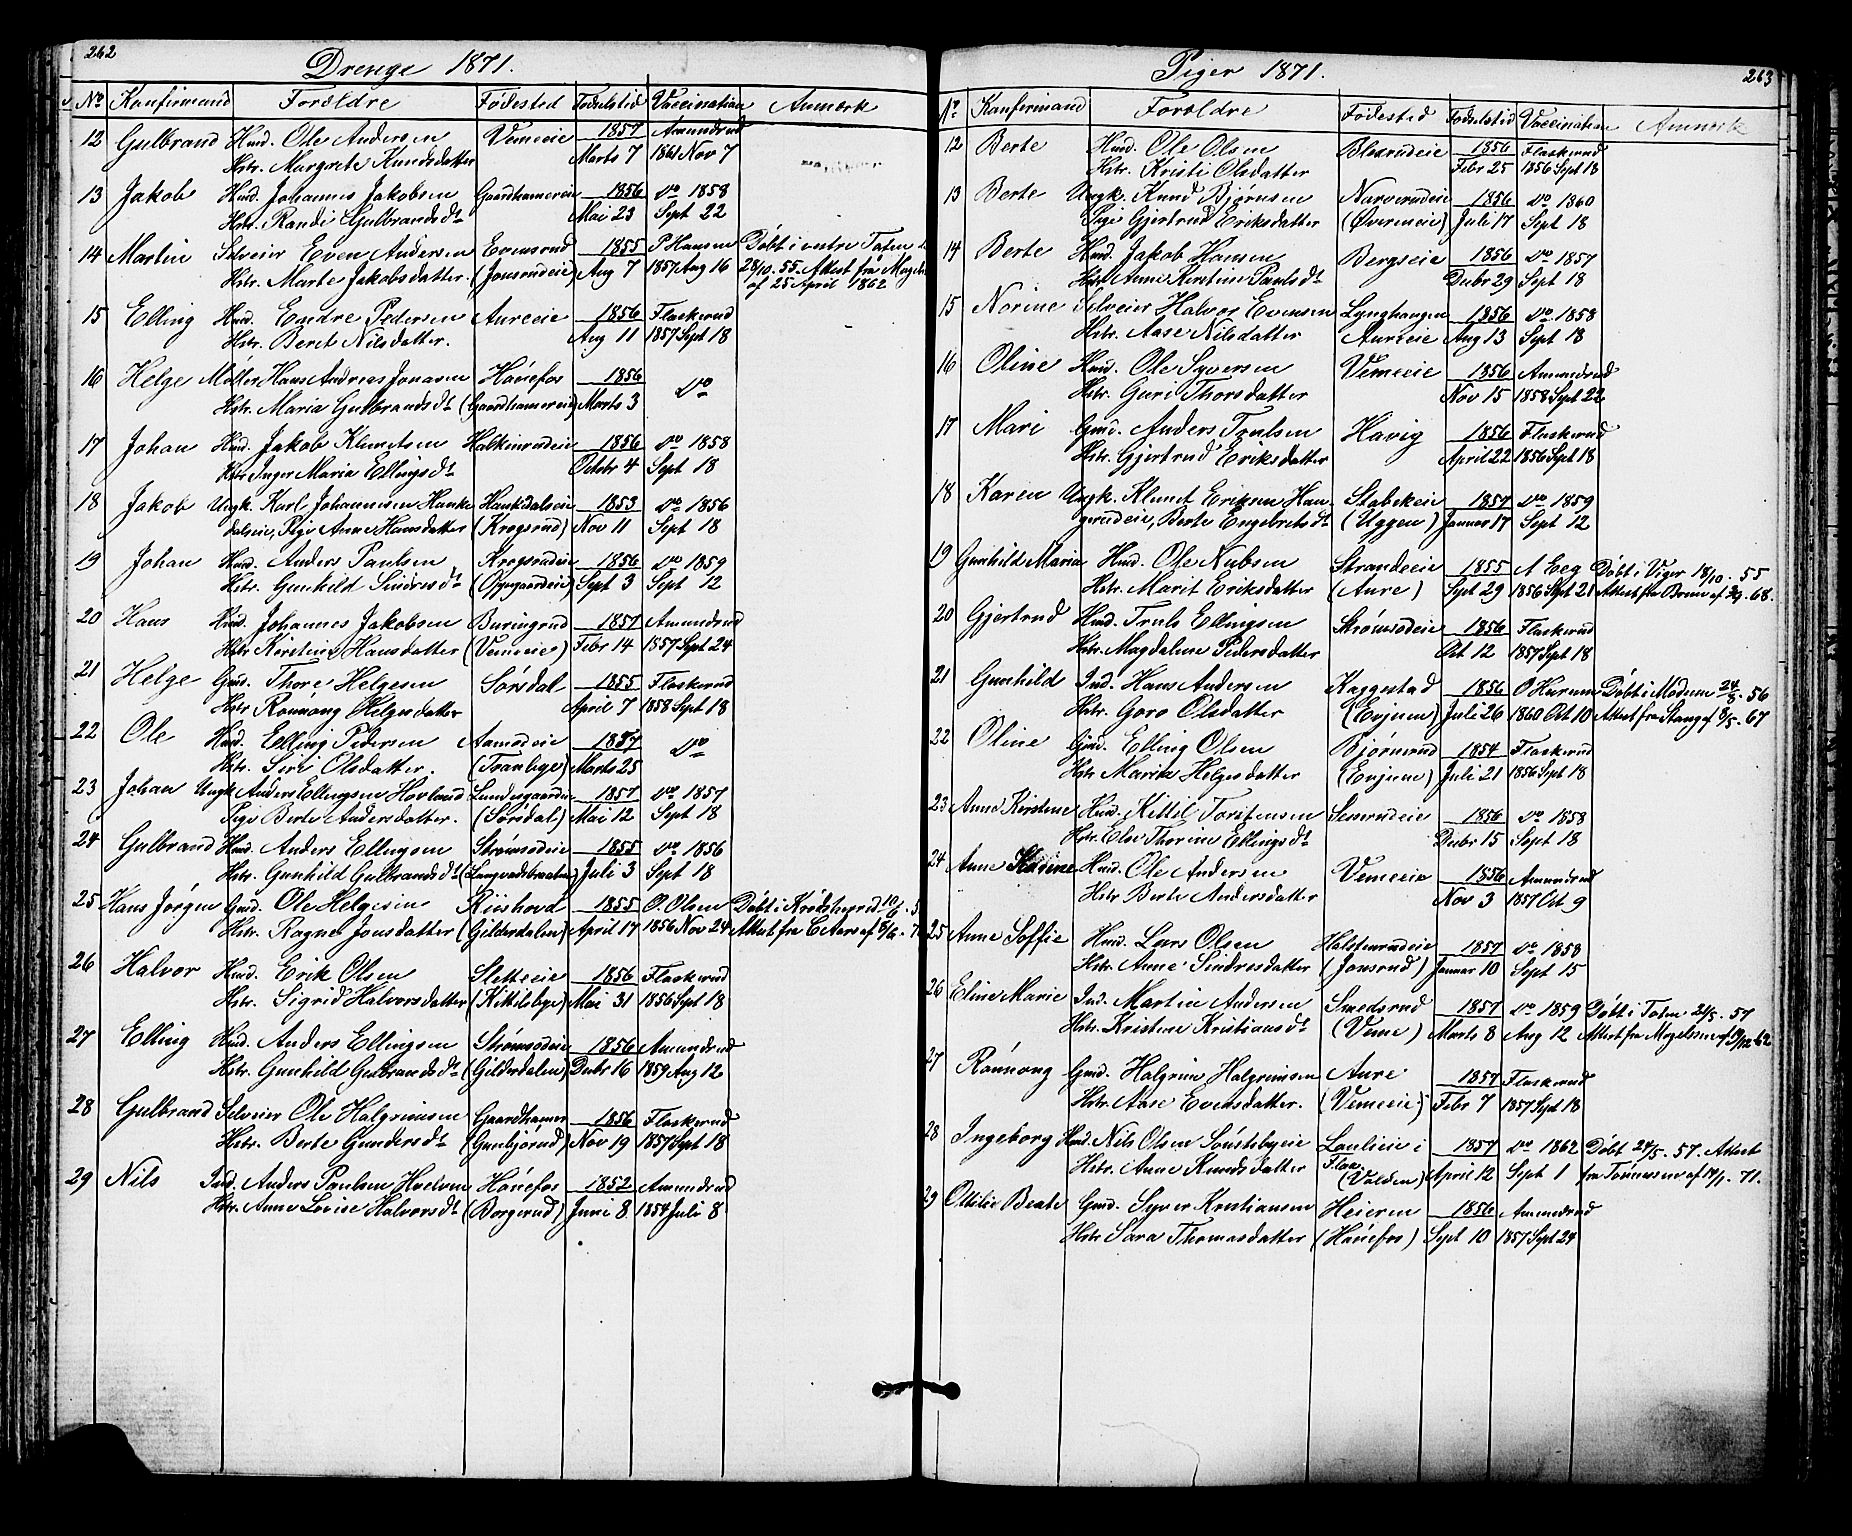 262
Drenge 1871.
No Konfirmand Forældre Fødested Fødselstid Vaccination Anmærk
12 Gulbrand Husd. Ole Andersen Vemeeie 1857 Amundrud
Hstr. Margrete Knudsdatter Marts 7 1861 Nov 7
13 Jakob Husd. Johannes Jakobsen Gaardhamereie 1856 do 1858
Hstr. Randi Gulbrandsdt Mai 23 Sept 22
14 Martin Selveier Even Andersen Evensrud 1855 P Hansen Døbt i vestre Toten
Hstr. Marte Jakobsdatter. (Jonsrudeie) Aug 7 1857 Aug 16 28/10. 55. Attest fra
af 25 April 1862
15 Elling Husd. Endre Pedersen Aureeie 1856 Flaskerud
Hstr. Beret Nilsdatter. Aug 11 1857 Sept 18
16 Helge Møller Hans Andreas Jonasen Hønefos 1856 do
Hstr. Maria Gulbrandsdt (Gaardhamereie) Marts 3
17 Johan Husd. Jakob Klemetsen Halkinrudeie 1856 do 1858
Hstr Inger Maria Ellingsdt Octbr 4 Sept 18
18 Jakob Ungk. Karl Johannesen Hanke Hankedalseie 1853 do 1856
dalseie, Pige Anne Hansdatter (Krogsrud) Nov 11 Sept 18
19 Johan Husd. Anders Paulsen Krogsrudeie 1856 do 1859
Hstr. Gunhild Sindresdt (Opgaardeie) Sept 3 Sept 12
20 Hans Husd. Johannes Jakobsen Buringrud 1857 Amundrud
Hstr Kirstine Hansdatter (Vemeeie) Febr 14 1857 Sept 24
21 Helge Gmd. Thore Helgesen Sørsdal 1855 Flaskerud
Hstr Rønnøug Helgesdatter April 7 1858 Sept 18
22 Ole Husd. Elling Pedersen Aamodeie 1857 do
Hstr. Siri Olsdatter. (Tranbye) Marts 25
23 Johan Ungk Anders Ellingsen Hovland 1857 do 1857
Pige Berte Andersdatter. (Sørdal) Mai 12 Sept 18
24 Gulbrand Husd. Anders Ellingsen Strømsodeie 1855 do 1856
Hstr. Gunhild Gulbrandsdt Juli 3 Sept 18
25 Hans Jørgen Gmd. Ole Helgesen Riishovd 1855 O. Olsen Døbt i Krødsherred 10/6.
Hstr. Ragne Jonsdatter (Gilderdalen) April 17 1856 Nov 24 Attest fra C Aars af
26 Halvor Husd. Erik Olsen Sletteeie 1856 Flaskerud
Hstr. Sigrid Halvorsdatter (Kittilsbye) Mai 31 1856 Sept 18
27 Elling Husd. Anders Ellingsen Strømsodeie 1856 Amundrud
Hstr. Gunhild Gulbrandsdt (Gilderdalen) Decbr 16 1859 Aug 12
28 Gulbrand Selveier Ole Halgrimsen Gaardhamer 1856 Flaskerud
Hstr. Berte Gundersdt (Gunbjørud) Nov 19 1857 Sept 18
29 Nils Ind. Anders Paulsen Hønefos 1852 Amundrud
Hstr. Anne Lovise Halvorsdt (Borgerud) Juni 8 1854 Juli 8
263
Piger 1871.
No Konfirmand Forældre Fødested Fødselstid Vaccination Anmærk
12 Berte Husd. Ole Olsen Blexrudeie 1856 Flaskerud
Hstr. Kristi Olsdatter Febr 25 1856 Sept 18
13 Berte Ungk. Knud Bjørnsen Narverudeie 1856 do 1860
Pige Gjertrud Eriksdatter (Øverneeie) Juli 17 Sept 18
14 Berte Husd. Jakob Hansen Bergseie 1856 do 1857
Hstr Anne Kirstine Paulsdt Decbr 29 Sept 18
15 Norine Selveier Halvor Evensen Lynghaugen 1856 do 1858
Hstr. Aase Nilsdatter Aureeie Aug 13 Sept 18
16 Oline Husd. Ole Syversen Vemeeie 1856 Amundrud
Hstr. Guri Thorsdatter Nov 15 1858 Sept 22
17 Mari Gmd. Anders Poulsen Havig 1856 Flaskerud
Hstr. Gjertrud Eriksdatter April 22 1856 Sept 18
18 Karen Ungk. Klemet Eriksen Hau Stabekeie 1857 do 1859
gerudeie, Berte Engebretsdt (Uggen) Januar 17 Sept 12
19 Gunhild Maria Husd. Ole Nubsen Strandeeie 1855 A Eeg Døbt i Viger 18/10. 55
Hstr. Marit Eriksdatter (Aure) Sept 29 1856 Sept 21 Attest fra Bruun af 68.
20 Gjertrud Husd. Truls Ellingsen Strømsodeie 1856 Flaskerud
Hstr. Magdalene Pedersdatter Oct 12 1857 Sept 18
21 Gunhild Ind. Hans Andersen Kaggestad 1856 O Hurum Døbt i Modum 24/8. 56
Hstr. Goro Olsdatter (Enjum) Juli 26 1860 Oct 10 Attest fra Stang af 8/5. 67
22 Oline Gmd. Elling Olsen Bjørnerud 1854 Flaskerud
Hstr Marita Helgesdatter (Enjum) Juli 21 1856 Sept 18
23 Anne Kirstine Husd. Kittil Torstensen Semrudeie 1856 do 1858
Hstr. Else Thorine Ellingsdt Decbr 15 Sept 18
24 Anne Husd. Ole Andersen Vemeeie 1856 Amundrud
Hstr Berte Andersdatter Nov 3 1857 Oct 9
25 Anne Soffie Husd. Lars Olsen Halstenrudeie 1857 do 1858
Hstr. Anne Sindresdatter (Jonsrud) Januar 10 Sept 15
26 Eline Marie Ind. Martin Andersen Smedsrud 1857 do 1859 Døbt i Toten 24/5. 57
Hstr. Kristine Kristiansdt (Veme) Marts 8 Aug 12 Attest fra Magelssen af 62
27 Rønnoug Gmd. Halgrim Halgrimsen Aure 1857 Flaskerud
Hstr. Aase Evensdatter. (Vemeeie) Febr 7 1857 Sept 18
28 Ingeborg Husd. Nils Olsen Sønstebyeie Laulieie i 1857 do 1862 Døbt 24/5. 57. Attest
Hstr. Anne Knudsdatter Flaa (Valdem) April 12 Sept 1 fra Tønnesen af 14/1. 71.
29 Ottilie Beate Gmd. Syver Kristiansen Heieren 1856 Amundrud
Hstr Sara Thomasdatter (Hønefos) Sept 10 1857 Sept 24